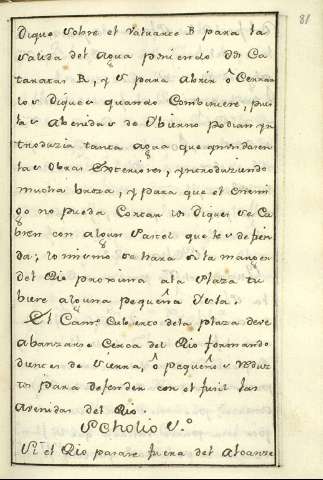 81
Dique sobre el Valuarte B para la
salida del Agua poniendo dos Ca
taratas R, y S para Abrir ô Cerrar
los Diques quando Combiniere, pues
las Abenidas de Ybierno podian yn
troduzir tanta agua que
las Obras Exteriores, yntroduziendo
mucha broza, y para que el enemi
go no pueda Cortar los Diques se Cu
bren con algun Vastol que les defien
da; lo mismo se hara si la margen
del Rio proxima a la Plaza tu
biere alguna pequeña Ysla.
El Camᵒ Cubierto dela plaza deve
abanzarse Cerca del Rio formando
dientes de Sierra, ô pequeños redu
tos para defender con el fusil las
avenidas del Rio.
Scholio 5.º
Si el Rio pasare fuera del alcanze